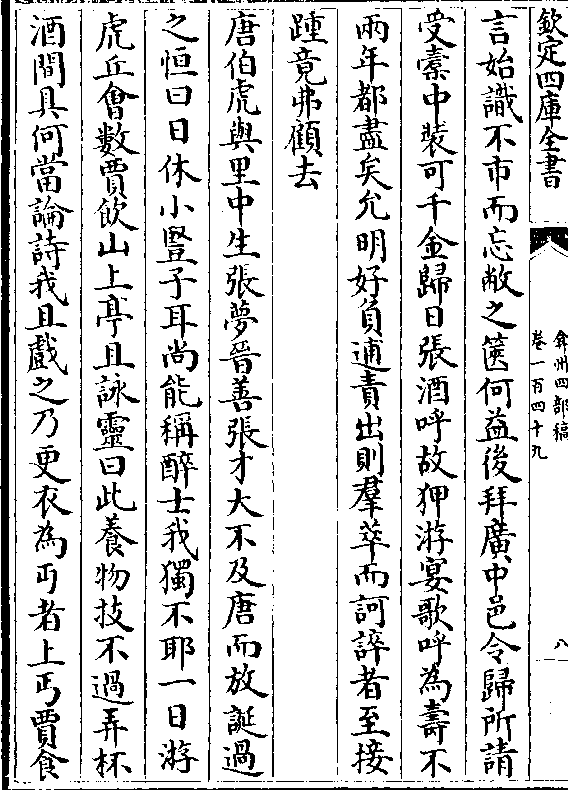 欽定四庫全書
弇州四部稿
卷一百四十九
八
言始識不市而忘敝之篋何益後拜廣中邑令歸所請
受橐中裝可千金歸日張酒呼故狎游宴歌呼為壽不
兩年都盡矣允明好負逋責出則羣萃而訶誶者至接
踵竟弗顧去
唐伯虎與里中生張夢晉善張才大不及唐而放誕過
之恒曰日休小豎子耳尚能稱醉士我獨不耶一日游
虎丘會數賈飲山上亭且詠靈曰此養物技不過弄杯
酒間具何當論詩我且戲之乃更衣為丐者上丐賈食